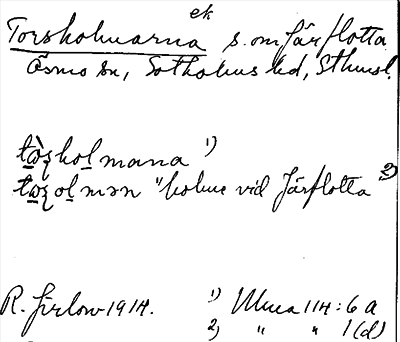 ek
Torsholmarna s. om Järflotta
Ösmo sn, Sotholms hd, Sthmsl.
tὼ̱ʂhol̲mana 1)
tω̱ʂol̲mən "holme vid Järflotta 2)
R. Jirlow 1914. 1) Muea 114:6a
2) " " 1(d)